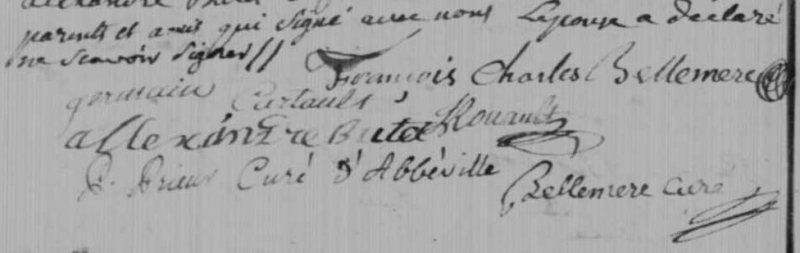 parents et amis qui signé avec nous L'epouse a déclaré
ne scavoir signer //
François Charles Bellemere
germain Cartault
allexandre butet Rouault
P. Prieur Curé d'Abbéville
Bellemere curé